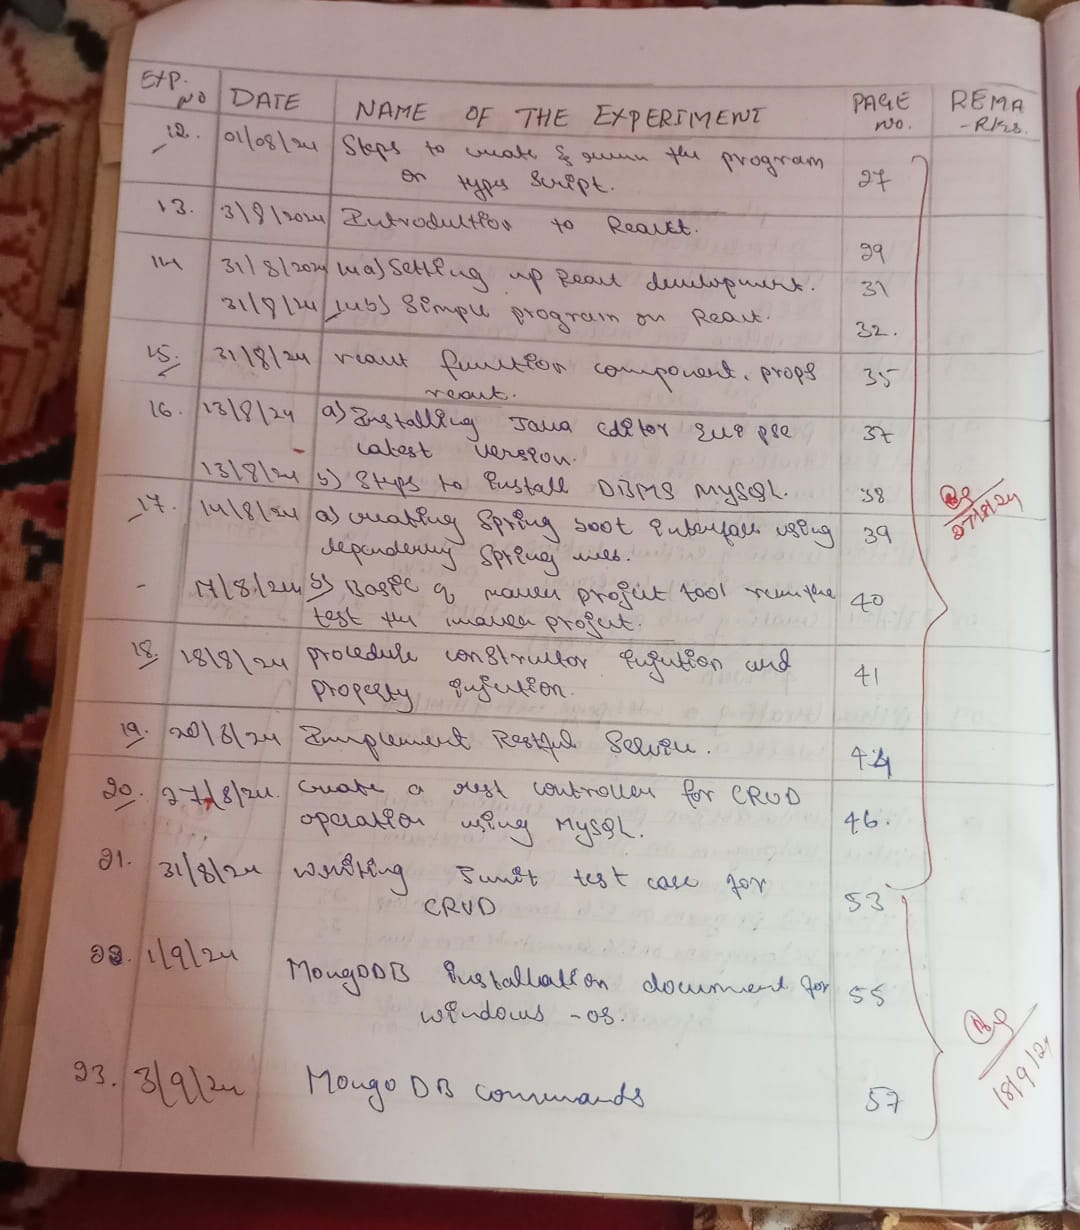 EXP. NO DATE NAME OF THE EXPERIMENT PAGE NO. REMA-RKS.
12. 01/08/24 Steps to create & run the program
on type script. 27
13. 3/8/2024 Introduction to React. 29
14 31/8/2024 14a) Setting up React development. 31
31/8/24 14b) Simple program on React. 32.
15. 31/8/24 react function component, props 35
react.
16. 13/8/24 a) Installing Java Editor
latest version. 37
13/8/24 b) Steps to install DBMS MySQL. 38
17. 14/8/24 a) creating Spring boot interface using 39
dependency Spring
- 17/8/24 b) Basic of maven project tool run the 40
test the maven project.
18. 18/8/24 procedure constructor injection and 41
property injection.
19. 20/8/24 Implement Restful Service. 44
20. 27/8/24. create a rest controller for CRUD
operation using MySQL. 46.
21. 31/8/24 writing Junit test case for
CRUD 53
22. 1/9/24 MongoDB installation document for 55
windows -os.
23. 3/9/24 Mongo DB commands 57
27/8/24
18/9/24